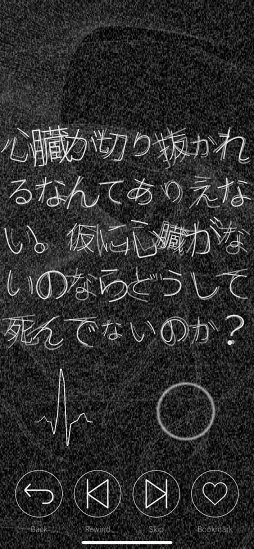 心臓が切り抜かれ
るなんてありえな
い。仮に心臓がな
いのならどうして
死んでないのか？
Back Rewind Skip Bookmark